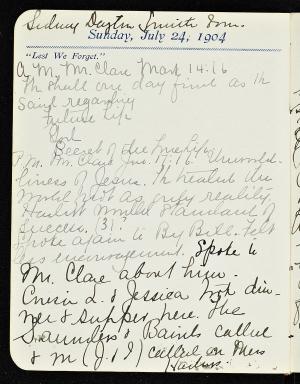 Sidney Dayton Smith
Sunday, July 24, 1904
"Lest We Forget."
A.M. Mr. Clare Mark 14:16
We shall one day find as th
said regarding
Future life
God
Secret of true
P.M. Mr. Clare Jno. 17:16.
liness of Jesus. He treated the
world not as only reality
world's standard of
success. (3).
Spoke again to Big Bill. Felt
his encouragement. Spoke to
Mr. Clare about him.
Cousin L. & Jessica both din-
ner & supper here. The
Saunders & Bairds called
& M (J & I) called on Mrs